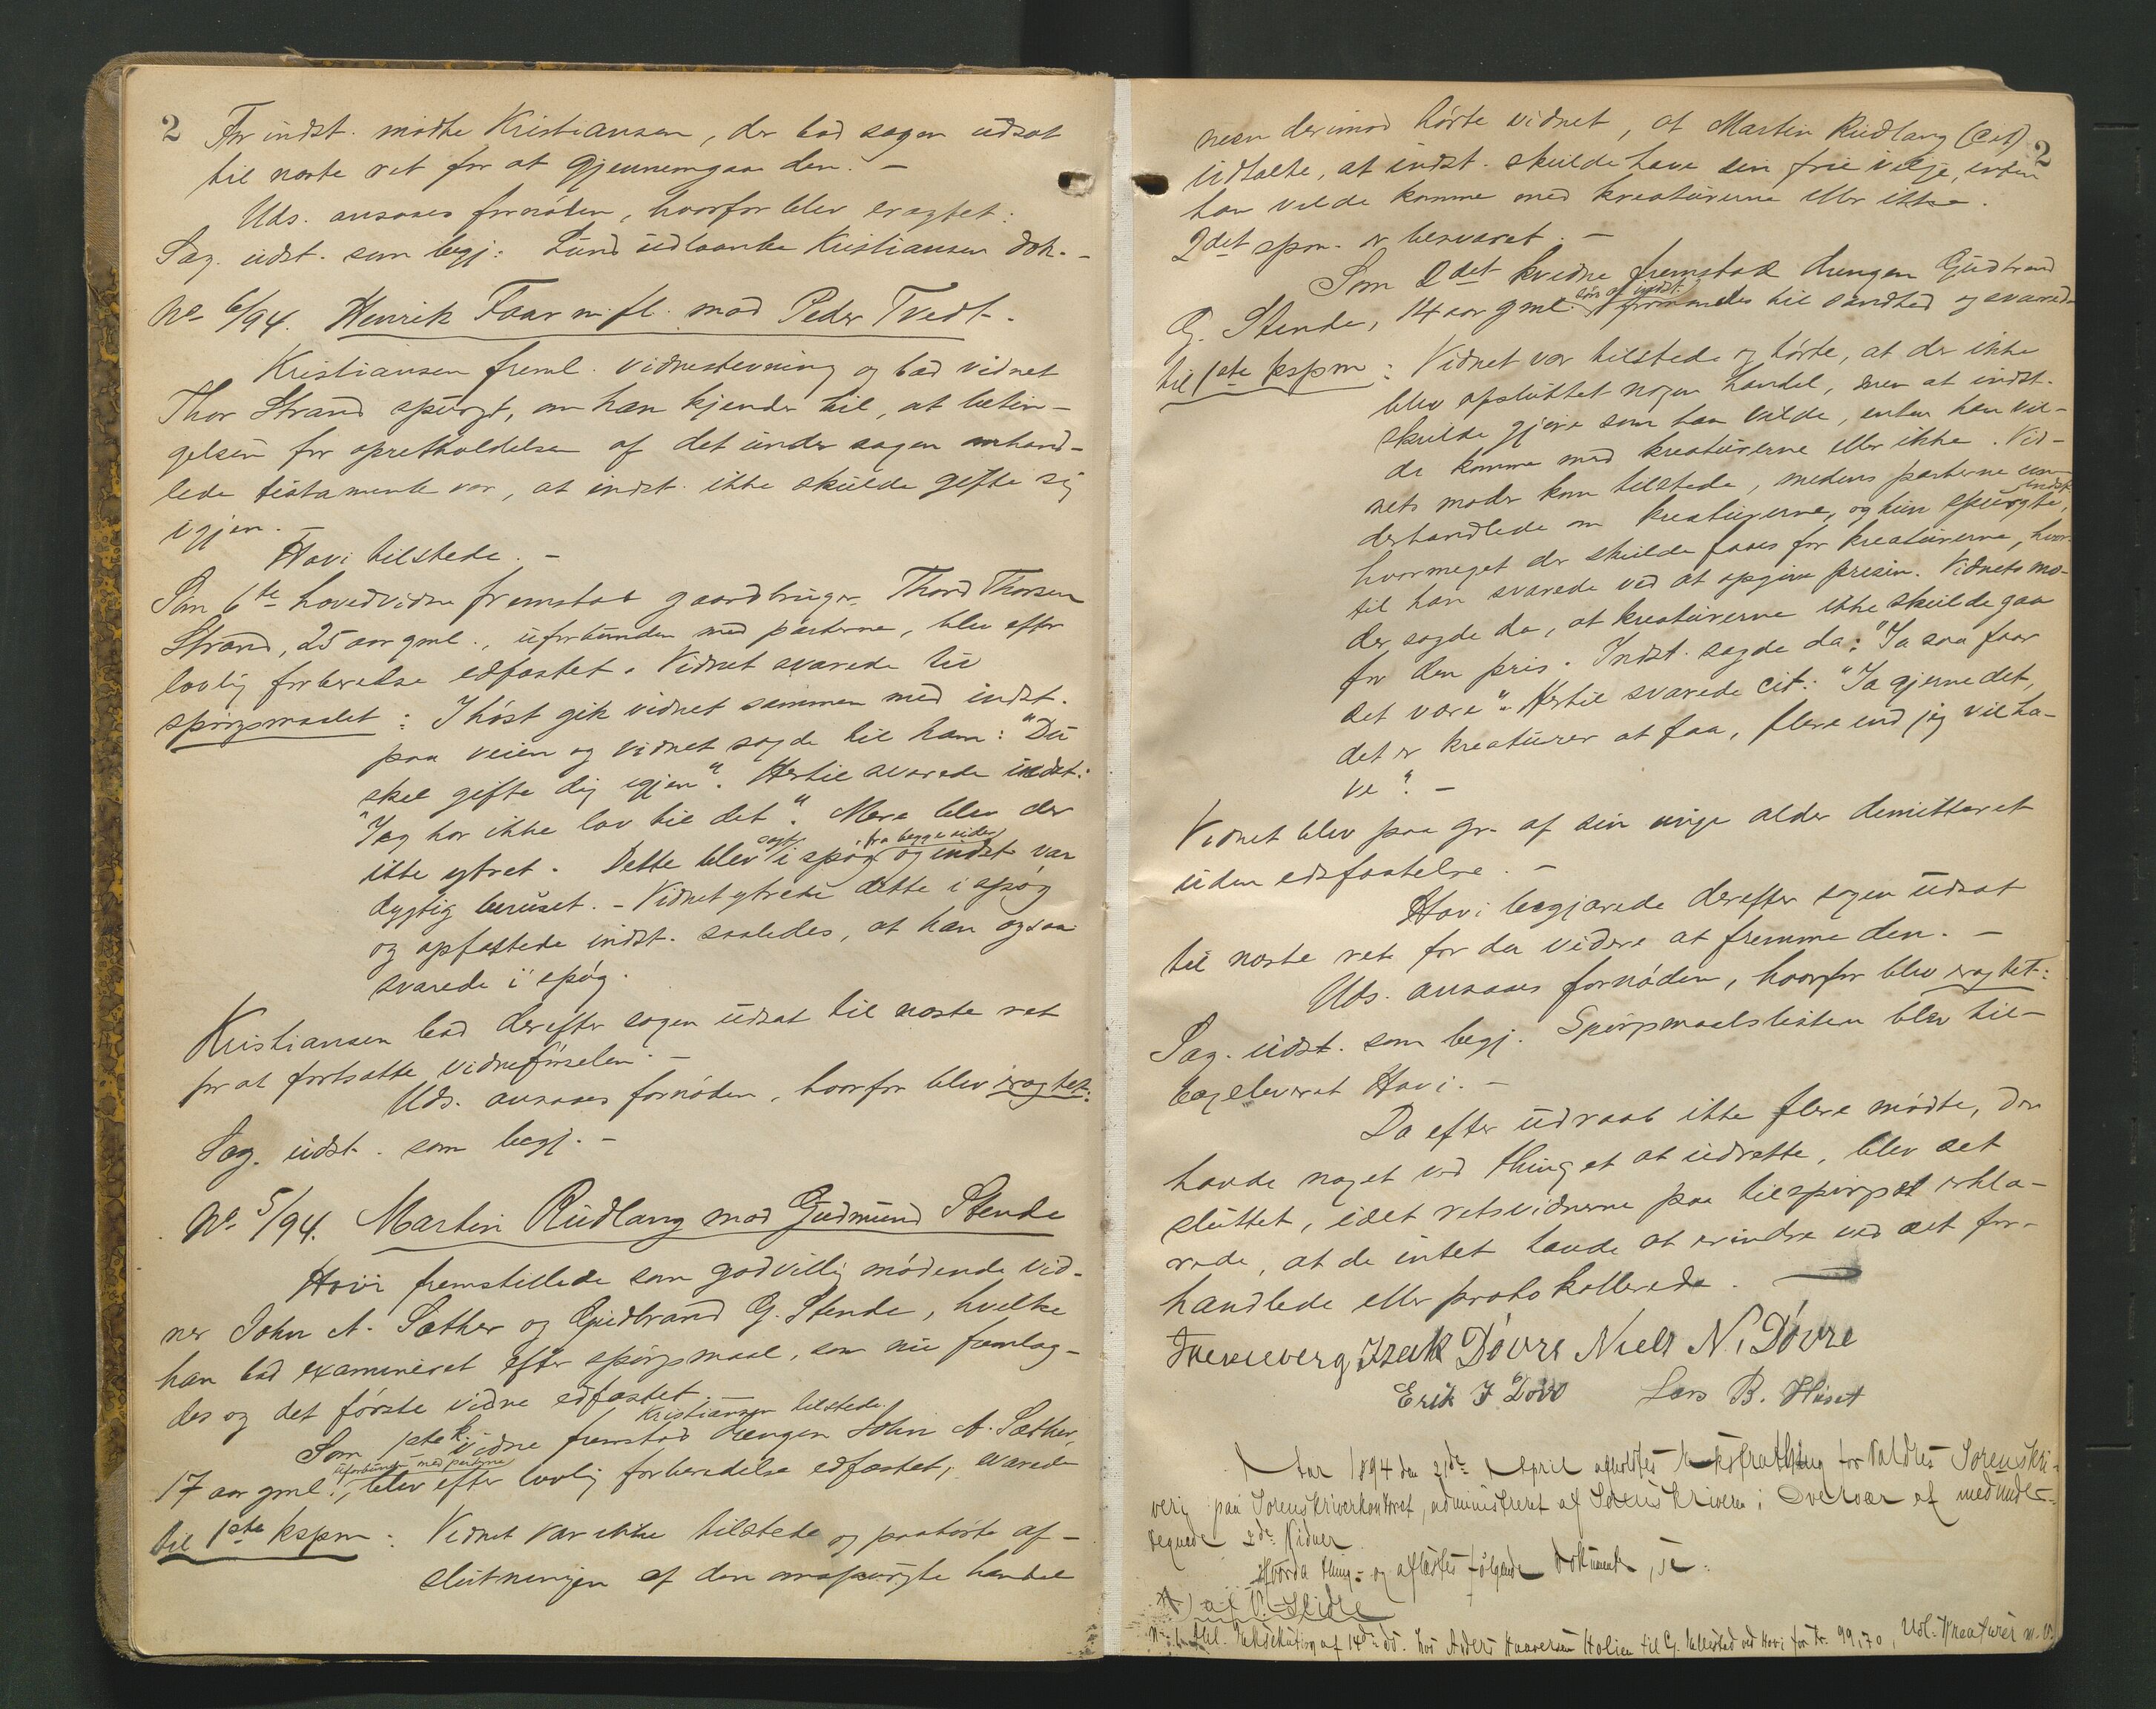 2
For indst. mødte Kristiansen, der bad sagen udsat
til næste ret for at gjennemgaa den. —
Uds. ansaaes fornøden, hvorfor blev eragtet:
Sag. udst. som begj: Lund udlaante Kristiansen dok. -
No 6/94. Henrik Faar m. fl. mod Peder Tvedt.
Kristiansen freml. vidnestevning og bad vidnet
Thor Strand spurgt, om han kjender til, at betin-
gelsen for opretholdelsen af det under sagen omhand-
lede testamente var, at indst. ikke skulde gifte sig
igjen. —
Hovi tilstede. —
Som 6te hovedvidne fremstod gaardbruger Thord Thorsen
Strand, 25 aar gml., uforbunden med parterne, blev efter
lovlig forberedelse edfæstet. Vidnet svarede til
spørgsmaalet: I høst gik vidnet sammen med indst.
paa veien og vidnet sagde til ham: "Du
skal gifte dig igjen". Hertil svarede indst:
"Jeg har ikke lov til det". Mere blev der
sagt fra begge sider
ikke ytret. Dette blev i spøg og indst var
dygtig beruset. - Vidnet ytrede dette i spøg
og opfattede indst. saaledes, at han ogsaa
svarede i spøg.
Kristiansen bad derefter sagen udsat til næste ret
for at fortsætte vidneførselen. —
Uds. ansaaes fornøden, hvorfor blev eragtet:
Sag. udst. som begj. —
No 5/94. Martin Rudlang mod Gudmund Stende
Hovi fremstillede som godvillig mødende vid-
ner John A. Sæther og Gudbrand G. Stende, hvilke
han bad examineret efter spørgsmaal, som nu fremlag-
des og det første vidne edfæstet. —
Kristiansen tilstede.
Som 1ste k. vidne fremstod drengen John A. Sæther,
uforbunden med parterne
17 aar gml., blev efter lovlig forberedelse edfæstet, svarede
til 1ste kspm: Vidnet var ikke tilstede og paahørte af-
slutningen af den omspurgte handel
2
men derimod hørte vidnet, at Martin Rudlang (cit)
udtalte, at indst. skulde have sin frie vilje, enten
han vilde komme med kreaturerne eller ikke.
2det spm. er besvaret. —
Som 2det kvidne fremstod drengen Gudbrand
søn af indst.
G. Stende, 14 aar gml. formanedes til sandhed og svarede
til 1ste kspm: Vidnet var tilstede og hørte, at der ikke
blev afsluttet nogen handel, men at indst.
skulde gjøre som han vilde, enten han vil-
de komme med kreaturerne eller ikke. Vid-
nets moder kom tilstede, medens parterne un-
indst
derhandlede om kreaturerne, og hun spurgte,
hvormeget der skulde faaes for kreaturerne, hvor-
til han svarede ved at opgive prisen. Vidnets mo-
der sagde da, at kreaturerne ikke skulde gaa
for den pris. Indst. sagde da: "Ja saa faar
det være". Hertil svarede cit: "Ja gjerne det,
det er kreaturer at faa, flere end jeg vil ha-
ve". —
Vidnet blev paa gr. af sin unge alder demitteret
uden edsfæstelse. —
Hovi begjærede derefter sagen udsat
til næste ret for da videre at fremme den. —
Uds. ansaaes fornøden, hvorfor blev eragtet:
Sag. udst. som begj. Spørgsmaalslisten blev til-
bageleveret Hovi. —
Da efter udraab ikke flere mødte, der
havde noget ved thinget at udrette, blev det
sluttet, idet retsvidnerne paa tilspørgsel erklæ-
rede, at de intet havde at erindre ved det for-
handlede eller protokollerede. —
Isak Dövre Niels N. Dövre
Erik I Dovr Lars B. Huset
Aar 1894 den 21de April afholdtes Extrathing for Valdres Sorenskri-
veri paa Sorenskriverkontoret, administreret af Sorenskriveren i Overvær af medunder-
tegnede 2de Vidner.
Hvorda thing- og aflæstes følgende Dokumenter, se:
A) af
No 1. Udl. af 14de ds. hos Anders Haaversen Holien til G. ved Hovi for Kr. 99,70, Udl. Kreaturer m. v.